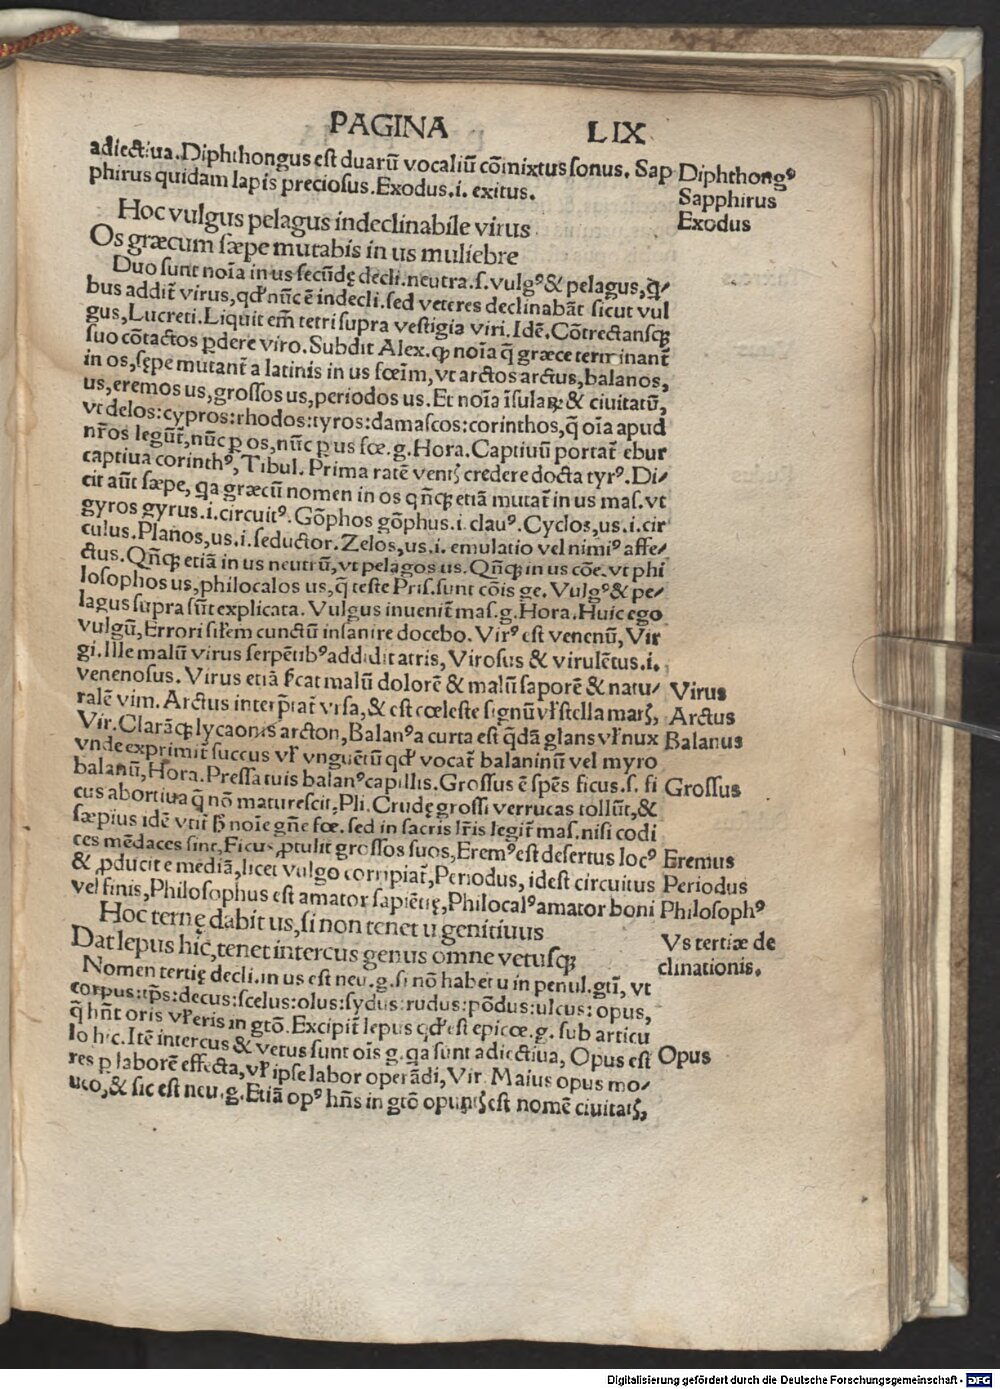 PAGINA LIX
adiectiua. Diphthongus est duarũ vocaliũ cõmixtus sonus. Sap
phirus quidam lapis preciosus. Exodus .i. exitus.
Diphthongꝰ
Sapphirus
Exodus
Hoc vulgus pelagus indeclinabile virus
Os græcum sæpe mutabis in us muliebre
Duo sunt noĩa in us secũdę decli. neutra .s. vulgꝰ & pelagus, q̃/
bus addit̃ virus, qđ nũc ē indecli. sed veteres declinabãt sicut vul
gus, Lucreti. Liquit em̃ tetri supra vestigia viri. Idẽ. Cõtrectansqꝫ
suo cõtactos ꝑdere viro. Subdit Alex. ꝙ noĩa q̃ græce terminant̃
in os, sępe mutant̃ a latinis in us fœĩm, vt arctos arctus, balanos,
us, eremos us, grossos us, periodos us. Et noĩa ĩsulaꝝ & ciuitatũ,
vt delos: cypros: rhodos: tyros: damascos: corinthos, q̃ oĩa apud
nr̃os legũt̃, nũc ꝑ os, nũc ꝑ us fœ. g. Hora. Captiuũ portat̃ ebur
captiua corinthꝰ, Tibul. Prima ratẽ ventꝭ credere docta tyrꝰ. Di/
cit aũt sæpe, qa græcũ nomen in os qñqꝫ etiã mutat̃ in us mas. vt
gyros gyrus .i. circuitꝰ. Gõphos gõphus .i. clauꝰ. Cyclos, us .i. cir
culus. Planos, us .i. seductor. Zelos, us .i. emulatio vel nimiꝰ affe/
ctus. Qñqꝫ etiã in us neutrũ, vt pelagos us. Qñqꝫ in us cõe. vt phi
losophos us, philocalos us, q̃ teste Pris. sunt cõis ge. Vulgꝰ & pe/
lagus supra sũt explicata. Vulgus inuenit̃ mas. g. Hora. Huic ego
vulgũ, Errori sil̃em cunctũ insanire docebo. Virꝰ est venenũ, Vir
gi. Ille malũ virus serpẽtibꝰ addidit atris, Virosus & virulẽtus .i.
venenosus. Virus etiã ſ̃cat malũ dolorẽ & malũ saporẽ & natu/
Virus
ralẽ vim. Arctus interp̃rat̃ vrsa, & est cœleste signũ vł stella marꝭ,
Arctus
Vir. Clarãqꝫ lycaonis arcton, Balanꝰ a curta est q̃dã glans vł nux
Balanus
vnde exprimit̃ succus vł vnguẽtũ qđ vocat̃ balaninũ vel myro
balanũ, Hora. Pressa tuis balanꝰ capillis. Grossus ẽ spẽs ficus .s. fi
Grossus
cus abortiua q̃ nõ maturescit, Pli. Crudę grossi verrucas tollũt, &
sæpius idẽ vtit̃ ꝧ noĩe gñe fœ. sed in sacris lr̃is legit̃ mas. nisi codi
ces mẽdaces sint, Ficus ꝓtulit grossos suos, Eremꝰ est desertus locꝰ
Eremus
& ꝓducit e mediã, licet vulgo corripiat̃, Periodus, idest circuitus
Periodus
vel finis, Philosophus est amator sapiẽtię, Philocalꝰ amator boni
Philosophꝰ
Hoc ternę dabit us, si non tenet u genitiuus
Dat lepus hic, tenet intercus genus omne vetusqꝫ
Vs tertiæ de
clinationis.
Nomen tertię decli. in us est neu. g. si nõ habet u in penul. gtĩ, vt
corpus: tp̃s: decus: scelus: olus: sydus: rudus: põdus: ulcus: opus,
q̃ hñt oris vł eris in gtõ. Excipit̃ lepus qđ est epicœ. g. sub articu
lo hic. Itẽ intercus & vetus sunt oĩs g. qa sunt adiectiua, Opus est
Opus
res ꝑ laborẽ effecta, vł ipse labor operãdi, Vir. Maius opus mo/
ueo, & sic est neu. g. Etiã opꝰ hñs in gtõ opuntꝭ est nomẽ ciuitatꝭ,
Digitalisierung gefördert durch die Deutsche Forschungsgemeinschaft - DFG